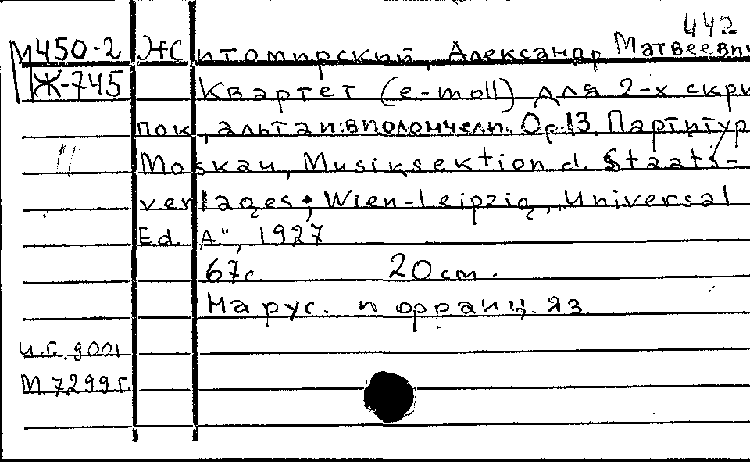 442
М450-2 Житомирский, Александр Матвеевич
Ж-745 Квартет (e-moll) для 2-х скри
пок, альта и виолончели. Op.13 Партитур
Moskau, Musiksektion d. Staats-
verlages; Wien-Leipzig, "Universal
Ed. A", 1927
67с 20 cm.
На рус. и франц. яз
М 7299г.